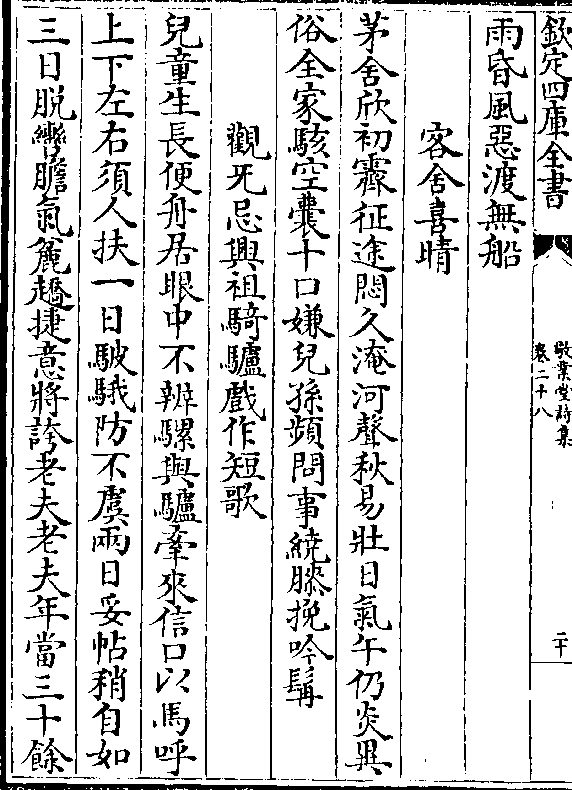 欽定四庫全書
敬業堂詩集
卷二十八
二十
雨昏風惡渡無船
客舍喜晴
茅舍欣初霽征途悶久淹河聲秋易壯日氣午仍炎異
俗全家駭空囊十口嫌兒孫頻問事繞膝挽吟髯
觀兒忌興祖騎驢戲作短歌
兒童生長便舟居眼中不辨騾與驢牽來信口以馬呼
上下左右須人扶一日駊騀防不虞兩日妥帖稍自如
三日脫轡膽氣麄趫捷意將誇老夫老夫年當三十餘